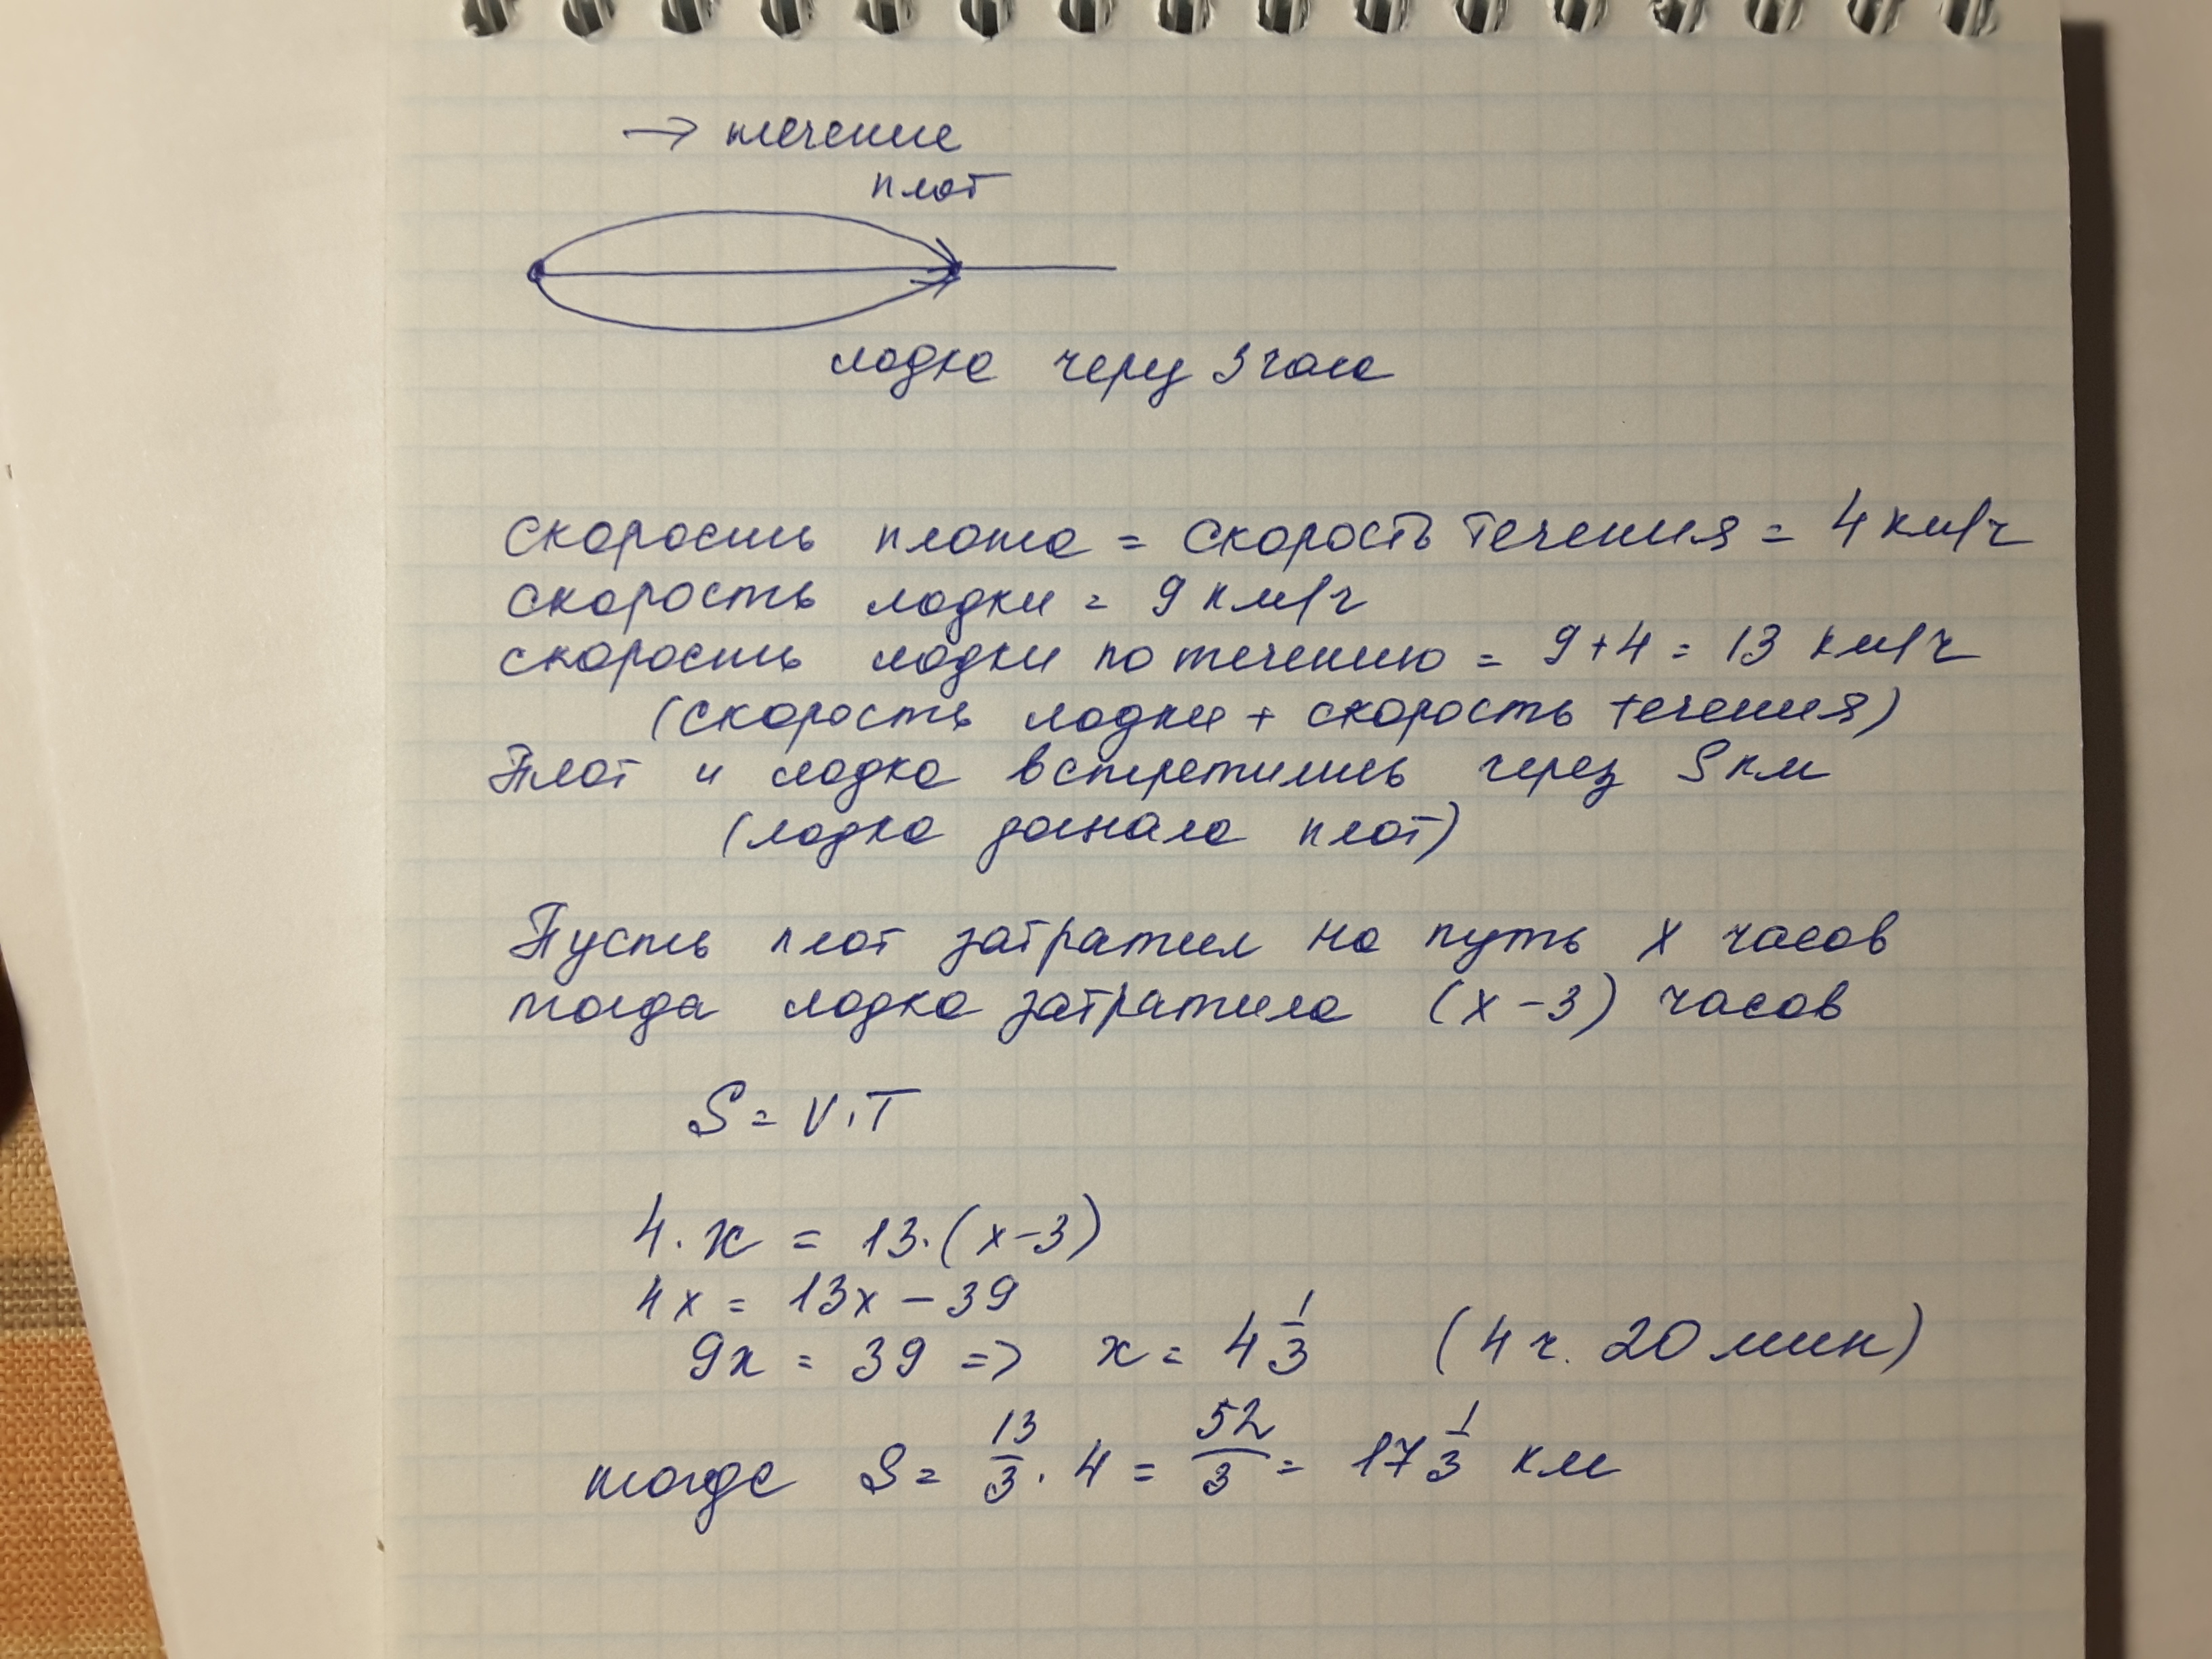 → течение
плот
лодка через 3 часа
скорость плота = скорость течения = 4 км/ч
скорость лодки = 9 км/ч
скорость лодки по течению = 9+4 = 13 км/ч
(скорость лодки + скорость течения)
Плот и лодка встретились через S км
(лодка догнала плот)
Пусть плот затратил на путь x часов
тогда лодка затратила (x-3) часов
S = V·T
4·x = 13·(x-3)
4x = 13x - 39
9x = 39 => x = 4 1/3 (4 ч. 20 мин)
тогда S = 13/3 · 4 = 52/3 = 17 1/3 км